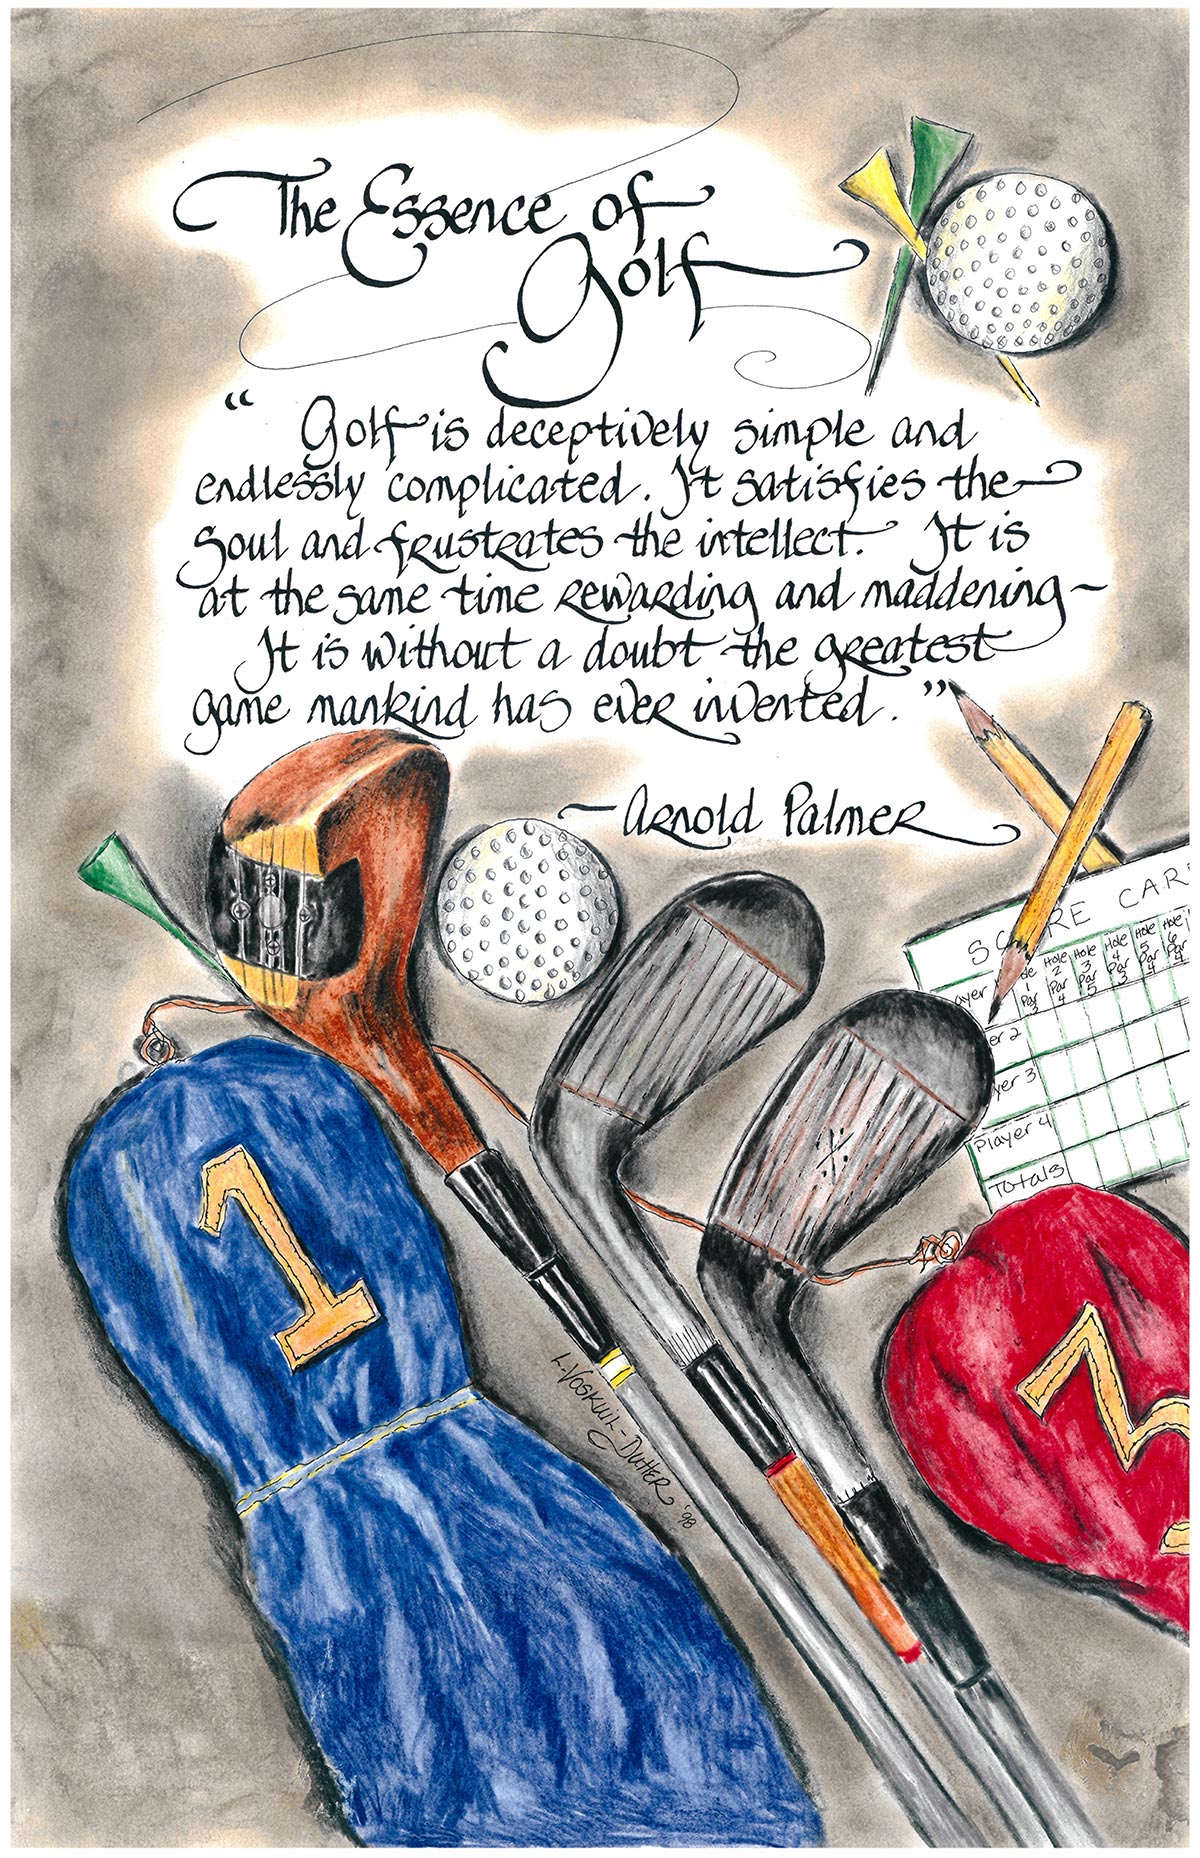 The Essence of
Golf
“ Golf is deceptively simple and
endlessly complicated. It satisfies the
Soul and frustrates the intellect. It is
at the same time rewarding and maddening -
It is without a doubt the greatest
game mankind has ever invented. ”
- Arnold Palmer
SCORE CAR
Hole 2 Par 4
Hole 3 Par 5
Hole 4 Par 3
Hole 5 Par 4
Hole 6 Par 4
le 1 Par 3
ayer
er 2
yer 3
Player 4
Totals
1
3
L-Voskuil-Dutter '98